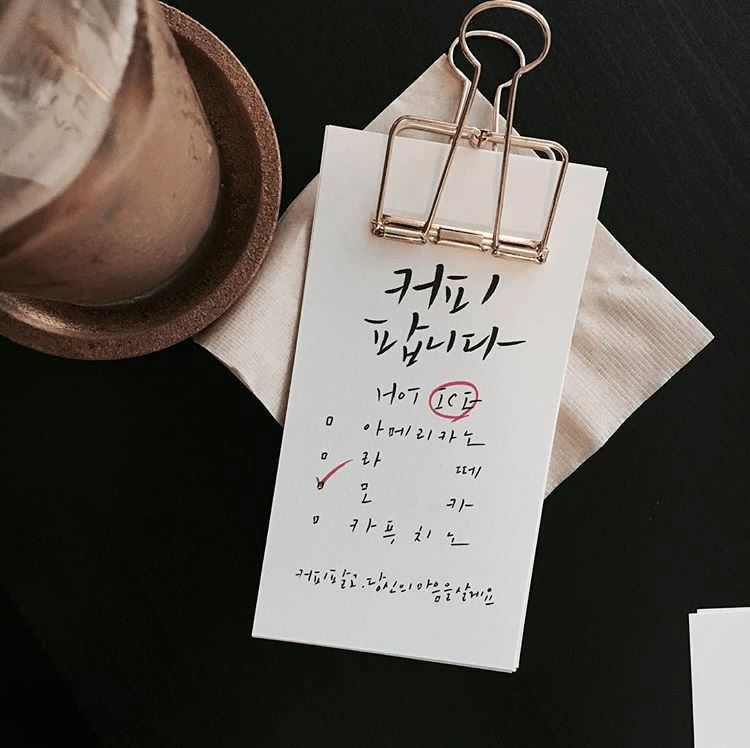 커피
팝니다
HOT ICE
아메리카노
라 떼
모 카
카푸치노
커피팔고, 당신의 마음을 살게요